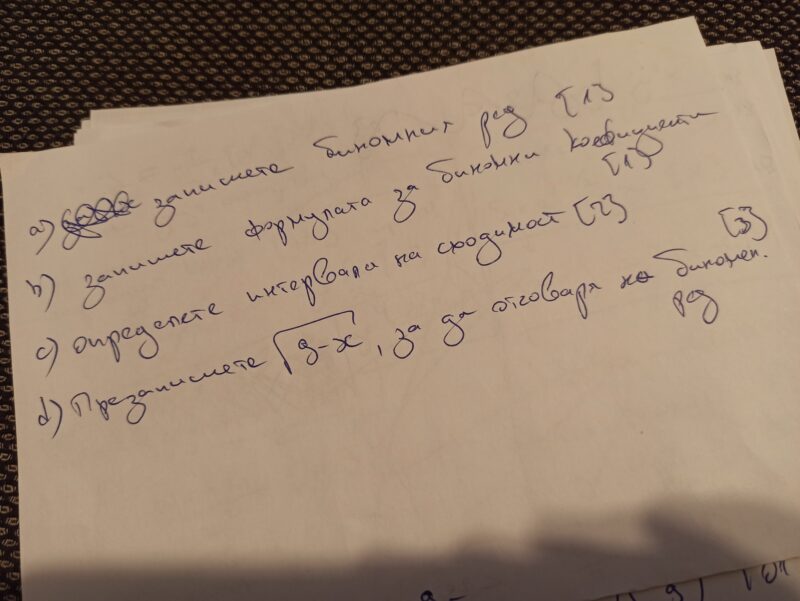 a) запишете биномния ред [1]
b) запишете формулата за биномни коефициенти [1]
c) определете интервала на сходимост [2]
d) Презапишете √9-x, за да отговаря на биномен. ред [3]